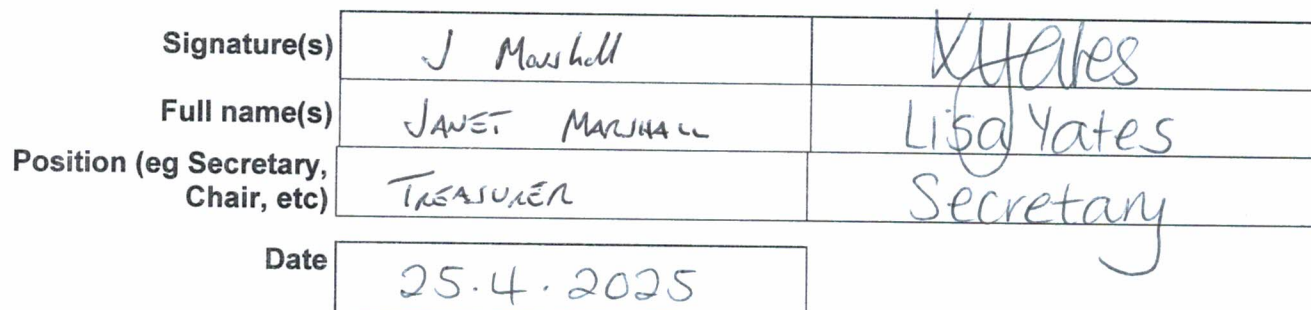 Signature(s) J Marshall LYates
Full name(s) JANET MARSHALL Lisa Yates
Position (eg Secretary,
Chair, etc) TREASURER Secretary
Date 25.4.2025